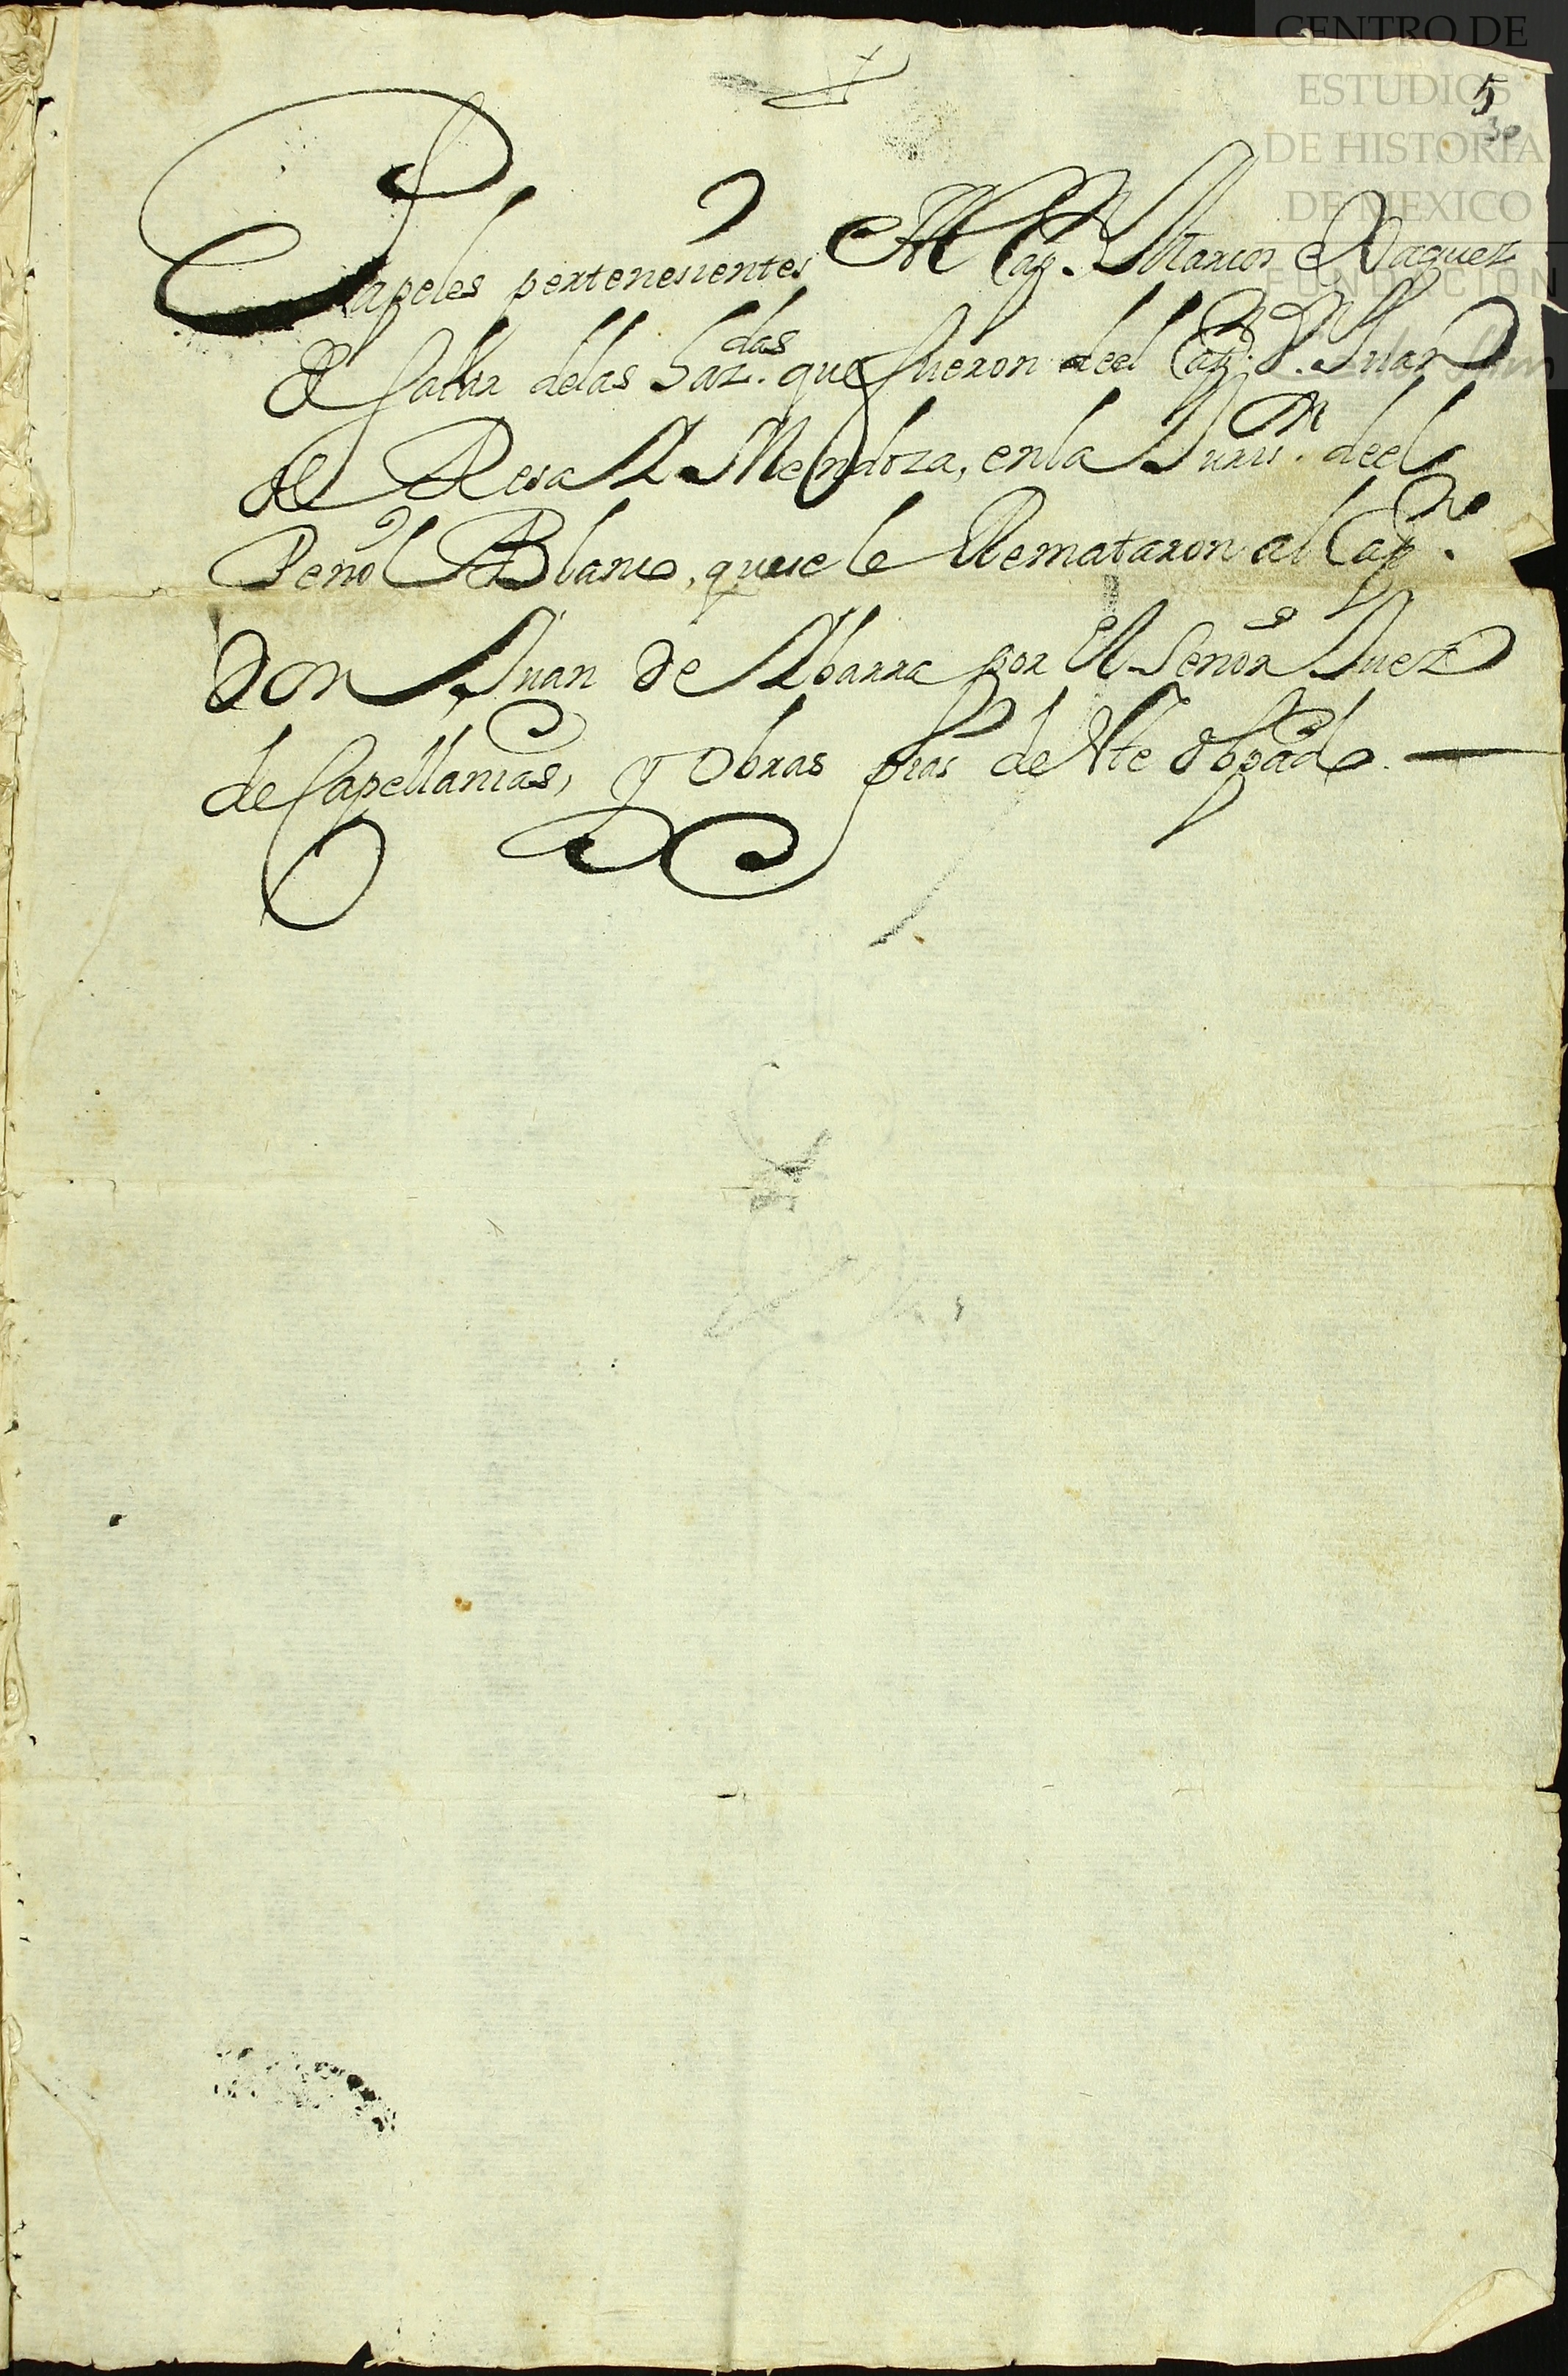 CENTRO DE
ESTUDIOS
DE HISTORIA
DE MEXICO
FUNDACIÓN
5
30
Papeles pertenesientes Al Cap.n Marcos Vaquez
de las Haz.das que fueron deel Cap.n D.n Juan
de Resa Y Mendoza, en la Juris.on deel
Peñol Blanco, que se le Remataron al Cap.n
Don Juan de Ybarra por El Señor Juez
de Capellanias, y Obras pias de Este Obpãdo.